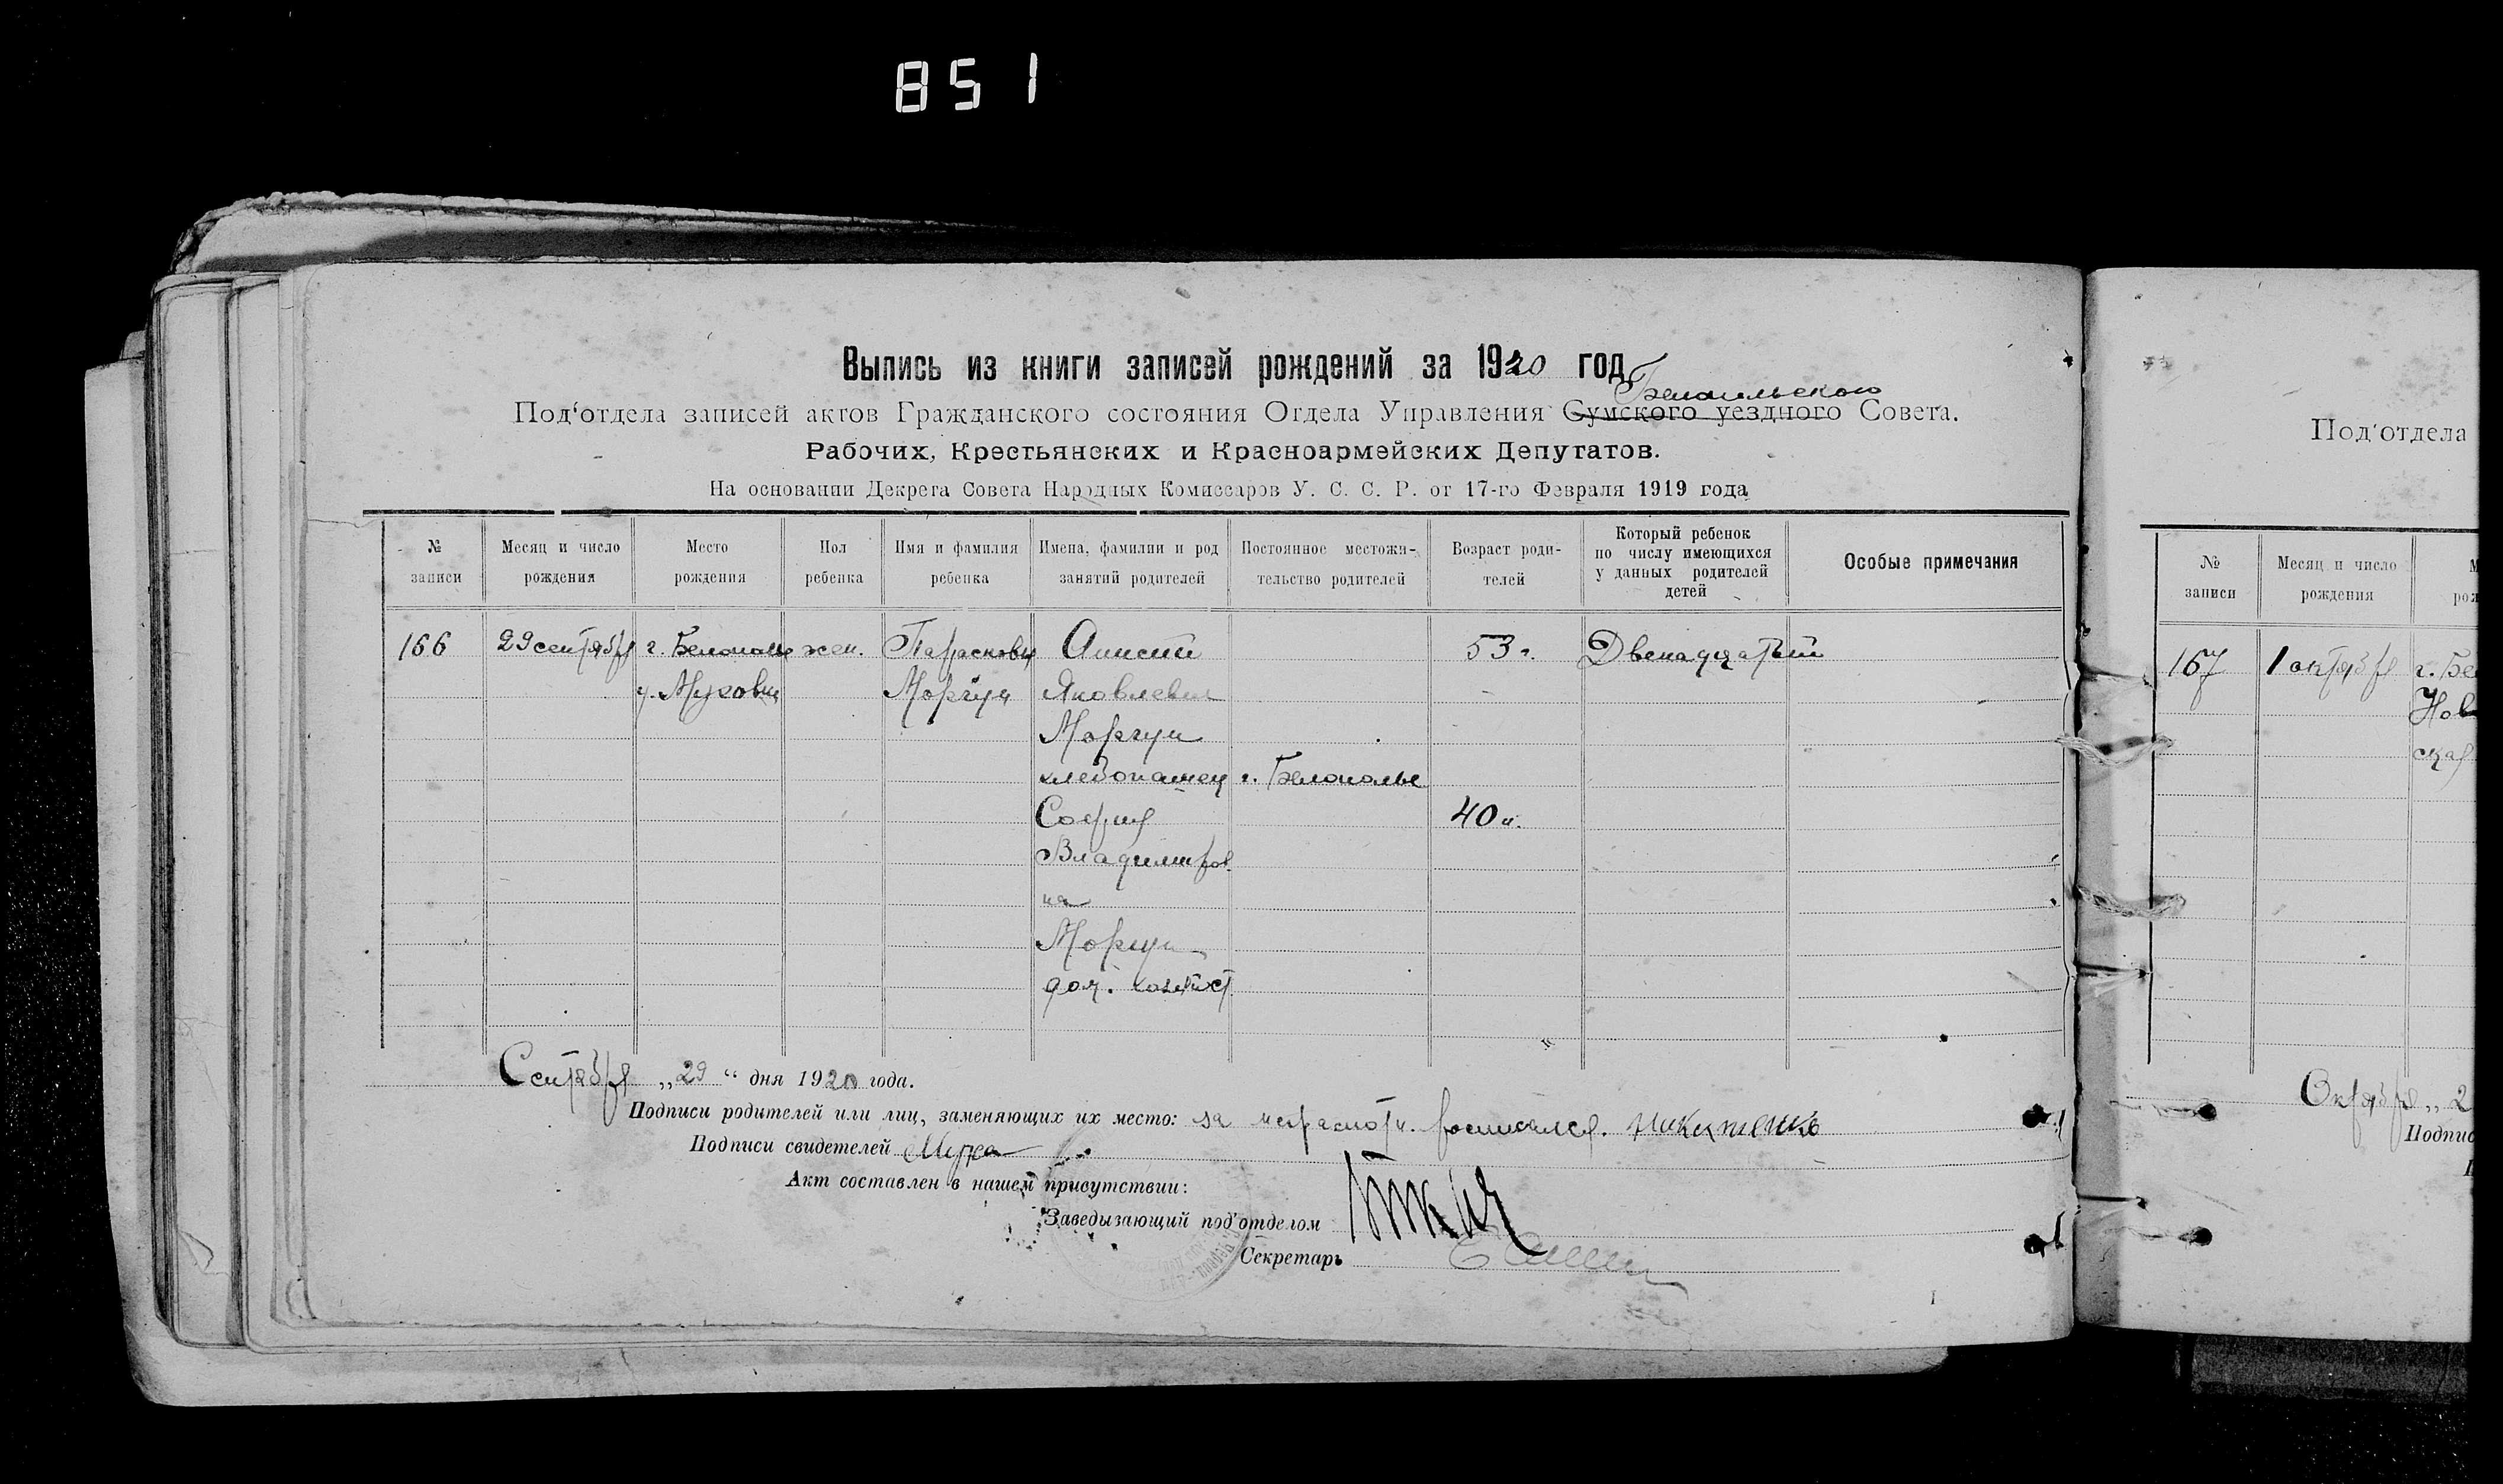 851
Выпись из книги записей рождений за 1920 год
Белопольского
Под‘отдела записей актов Гражданского состояния Отдела Управления Сумского уездного Совета.
Рабочих, Крестьянских и Красноармейских Депутатов.
На основании Декрета Совета Народных Комиссаров У. С. С. Р. от 17-го Февраля 1919 года
№ записи
Месяц и число рождения
Место рождения
Пол ребенка
Имя и фамилия ребенка
Имена, фамилии и род занятий родителей
Постоянное местожительство родителей
Возраст родителей
Который ребенок по числу имеющихся у данных родителей детей
Особые примечания
166 29 сентября г. Белополье жен. Параскова Анисти 53 г. Двенадцатый
Моргун Яковлевич
Моргун
хлебопашец г. Белополье
София 40 л.
Владимиров
на
Моргун
дом. хозяйст.
Сентября „29“ дня 1920 года.
Подписи родителей или лиц, заменяющих их место: за неграмотн. росписался. Никитенко
Подписи свидетелей
Акт составлен в нашем присутствии:
Заведывающий под‘отделом
Секретарь
Под‘отдела
№ записи
Месяц и число рождения
167 1 октября г. Бе
Нов
ская
Октября „2
Подпис